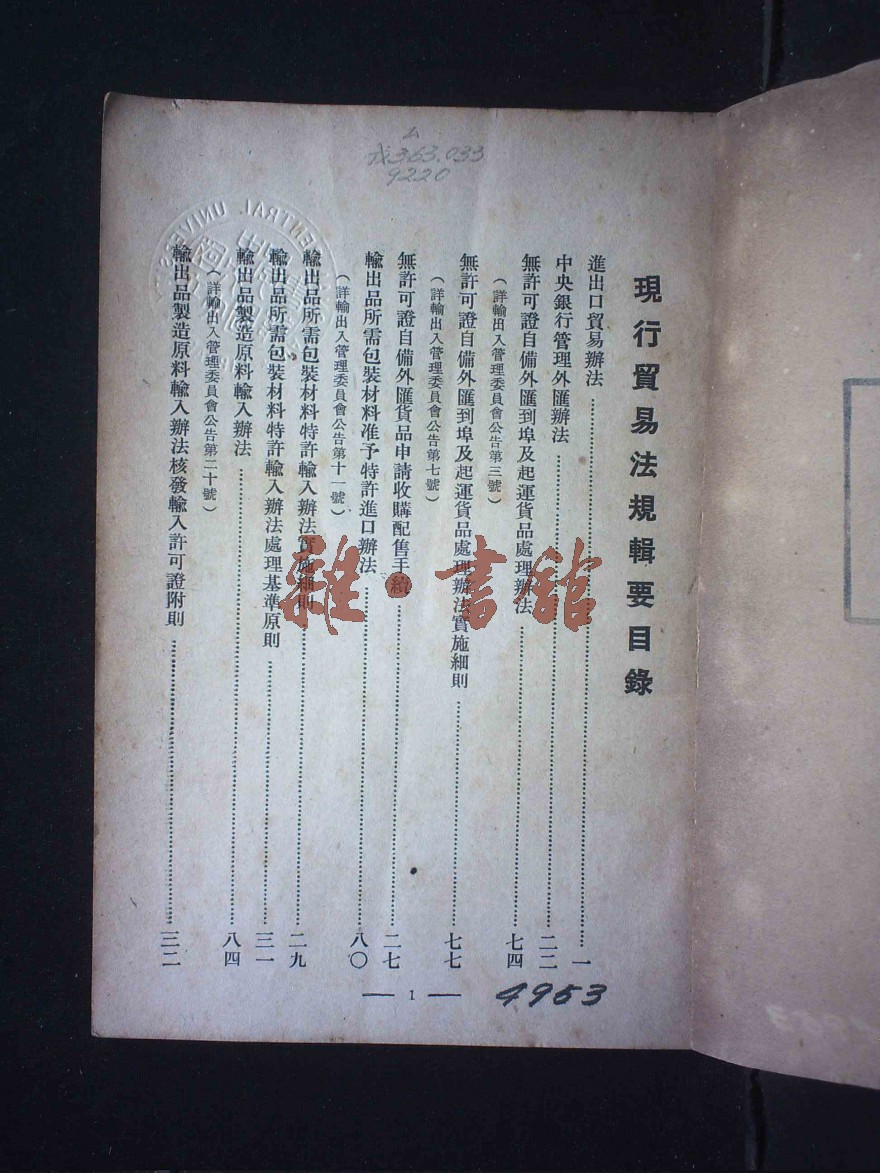 戊363.033
9220
現行貿易法規輯要目錄
進出口貿易辦法……一
中央銀行管理外匯辦法……二二
無許可證自備外匯到埠及起運貨品處理辦法……七四
（詳輸出入管理委員會公告第三號）
無許可證自備外匯到埠及起運貨品處理辦法實施細則……七七
（詳輸出入管理委員會公告第七號）
無許可證自備外匯貨品申請收購配售手續……二七
輸出品所需包裝材料准予特許進口辦法……八〇
（詳輸出入管理委員會公告第十一號）
輸出品所需包裝材料特許輸入辦法實施細則……二九
輸出品所需包裝材料特許輸入辦法處理基準原則……三一
輸出品製造原料輸入辦法……八四
（詳輸出入管理委員會公告第二十號）
輸出品製造原料輸入辦法核發輸入許可證附則……三二
— 1 —
4953
雜·書館
CENTRAL UNIVERS